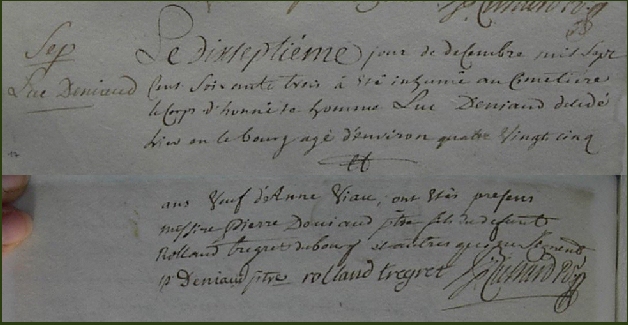 Sep
Luc Deniaud
Le dixseptiéme jour de decembre mil sept
cent soixante trois à été inhumé au Cemetiére
le corps d'honnéte homme Luc Deniaud decedé
hier en le bourg agé d'environ quatre vingt cinq
ans Veuf d'Anne Viau, ont étés presens
missire Pierre Deniaud ptre fils du defunt
Rolland tregret et autres qui
p Deniaud ptre rolland tregret